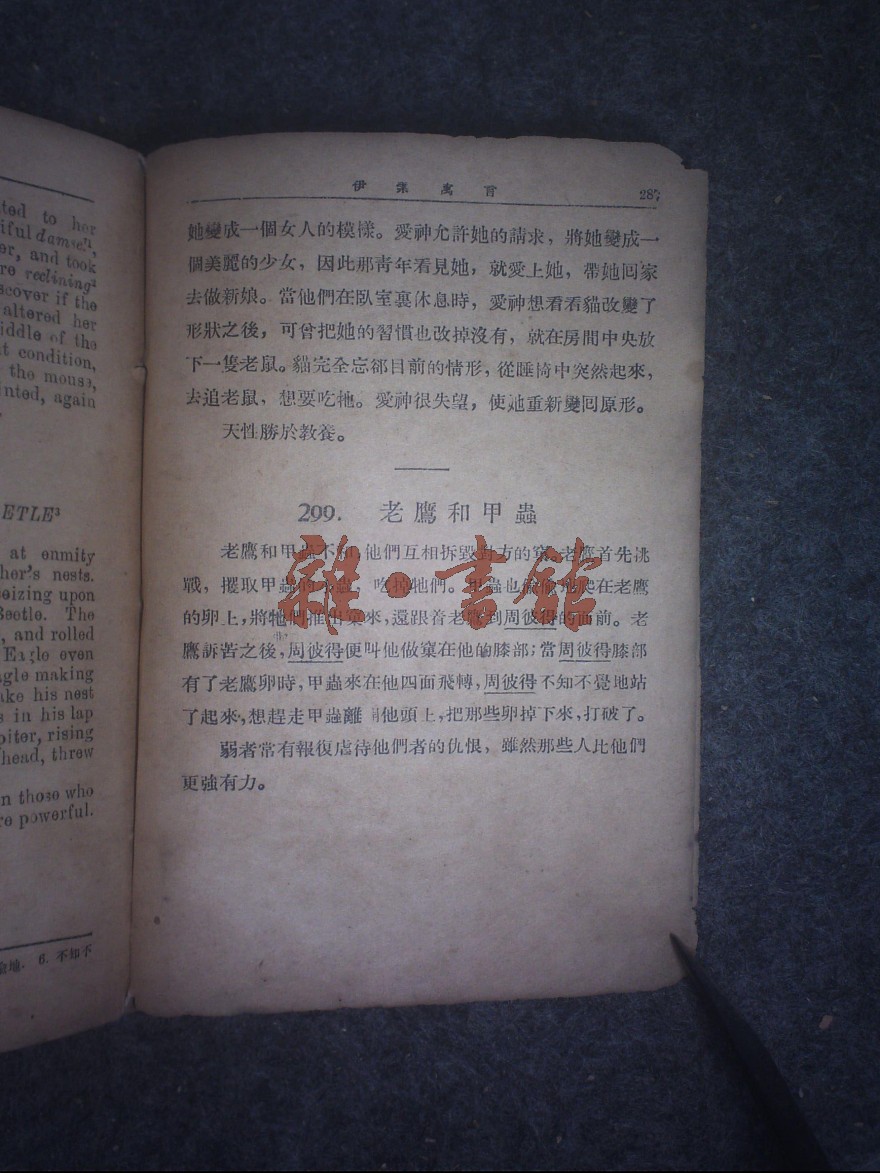 ted to her
iful damsel¹,
er, and took
re reclining²
scover if the
altered her
iddle of the
t condition,
the mouse,
nted, again
ETLE³
at enmity
her's nests.
eizing upon
Beetle. The
, and rolled
Eagle even
gle making
ke his nest
s in his lap
piter, rising
head, threw
n those who
re powerful.
6. 不知不
伊索寓言 287
她變成一個女人的模樣。愛神允許她的請求，將她變成一
個美麗的少女，因此那靑年看見她，就愛上她，帶她回家
去做新娘。當他們在臥室裏休息時，愛神想看看貓改變了
形狀之後，可曾把她的習慣也改掉沒有，就在房間中央放
下一隻老鼠。貓完全忘郤目前的情形，從睡椅中突然起來，
去追老鼠，想要吃牠。愛神很失望，使她重新變回原形。
天性勝於教養。
299. 老鷹和甲蟲
老鷹和甲蟲不和，他們互相拆毀對方的窠。老鷹首先挑
戰，攫取甲蟲的小蟲，吃掉牠們。甲蟲也偷偷地爬在老鷹
的卵上，將牠們推出窠來，還跟着老鷹到周彼得的面前。老
鷹訴苦之後，周彼得便叫他做窠在他的膝部；當周彼得膝部
有了老鷹卵時，甲蟲來在他四面飛轉，周彼得不知不覺地站
了起來，想趕走甲蟲離開他頭上，把那些卵掉下來，打破了。
弱者常有報復虐待他們者的仇恨，雖然那些人比他們
更強有力。
雜·書館